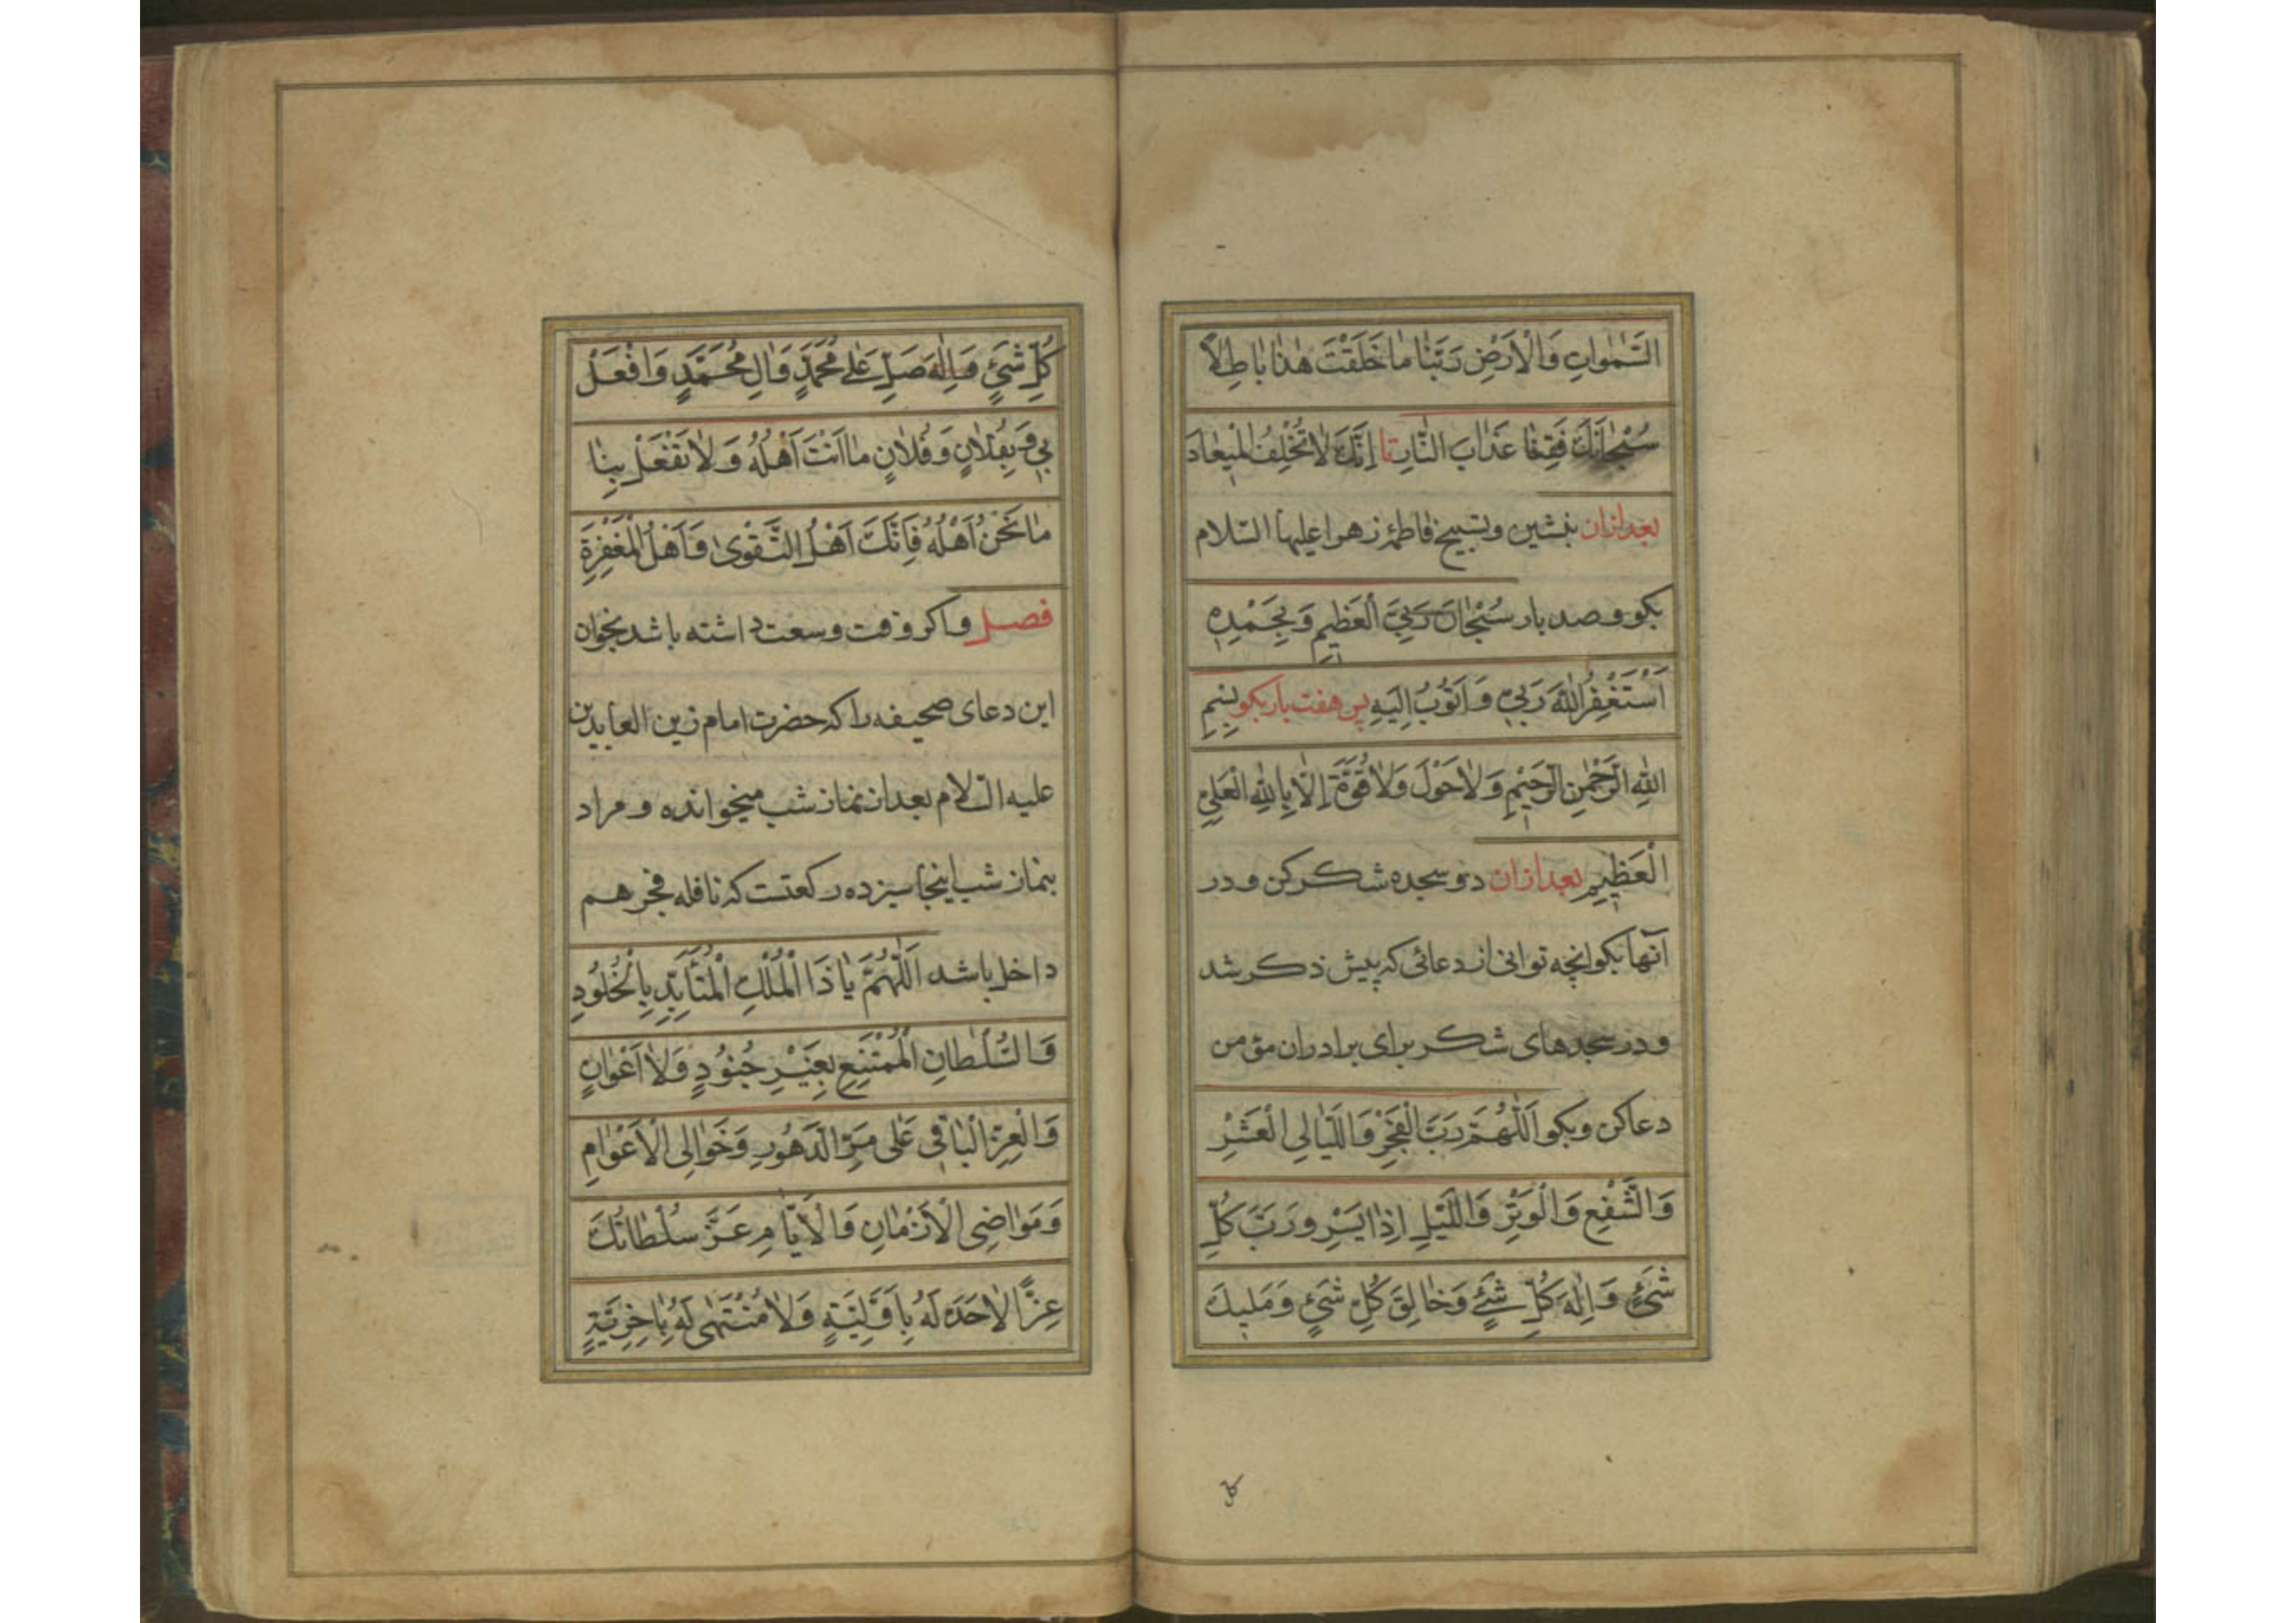 السَّمٰوَاتِ وَالْأَرْضِ رَبَّنَا مَا خَلَقْتَ هٰذَا بَاطِلًا
سُبْحَانَكَ فَقِنَا عَذَابَ النَّارِ تا إِنَّكَ لَا تُخْلِفُ الْمِيعَادَ
بعد ازان بنشین و تسبیح فاطمه زهرا علیها السّلام
بکو و صد بار سُبْحَانَ رَبِّيَ الْعَظِيمِ وَبِحَمْدِهِ
أَسْتَغْفِرُ اللّٰهَ رَبِّي وَأَتُوبُ إِلَيْهِ پس هفت بار بکو بِسْمِ
اللّٰهِ الرَّحْمٰنِ الرَّحِيمِ وَلَا حَوْلَ وَلَا قُوَّةَ إِلَّا بِاللّٰهِ الْعَلِيِّ
الْعَظِيمِ بعد ازان دو سجده شکر کن و در
آنها بکو انچه توانی از دعائی که پیش ذکر شد
و در سجدهای شکر برای برادران مؤمن
دعا کن و بکو اَللّٰهُمَّ رَبَّ الْفَجْرِ وَاللَّيَالِي الْعَشْرِ
وَالشَّفْعِ وَالْوَتْرِ وَاللَّيْلِ إِذَا يَسْرِ وَرَبَّ كُلِّ
شَيْءٍ وَإِلٰهَ كُلِّ شَيْءٍ وَخَالِقَ كُلِّ شَيْءٍ وَمَلِيكَ
كل
كُلِّ شَيْءٍ صَلِّ عَلَى مُحَمَّدٍ وَآلِ مُحَمَّدٍ وَافْعَلْ
بِي وَبِفُلَانٍ وَفُلَانٍ مَا أَنْتَ أَهْلُهُ وَلَا تَفْعَلْ بِنَا
مَا نَحْنُ أَهْلُهُ فَإِنَّكَ أَهْلُ التَّقْوَىٰ وَأَهْلُ الْمَغْفِرَةِ
فصل و اکر وقت وسعت داشته باشد بخوان
این دعای صحیفه را که حضرت امام زین العابدین
علیه السلام بعد از نماز شب میخوانده و مراد
بنماز شب اینجا سیزده رکعتست که نافله فجر هم
داخل باشد اَللّٰهُمَّ يَا ذَا الْمُلْكِ الْمُتَأَبِّدِ بِالْخُلُودِ
وَالسُّلْطَانِ الْمُمْتَنِعِ بِغَيْرِ جُنُودٍ وَلَا أَعْوَانٍ
وَالْعِزِّ الْبَاقِي عَلَى مَرِّ الدُّهُورِ وَخَوَالِي الْأَعْوَامِ
وَمَوَاضِي الْأَزْمَانِ وَالْأَيَّامِ عَزَّ سُلْطَانُكَ
عِزًّا لَا حَدَّ لَهُ بِأَوَّلِيَّةٍ وَلَا مُنْتَهَىٰ لَهُ بِآخِرِيَّةٍ